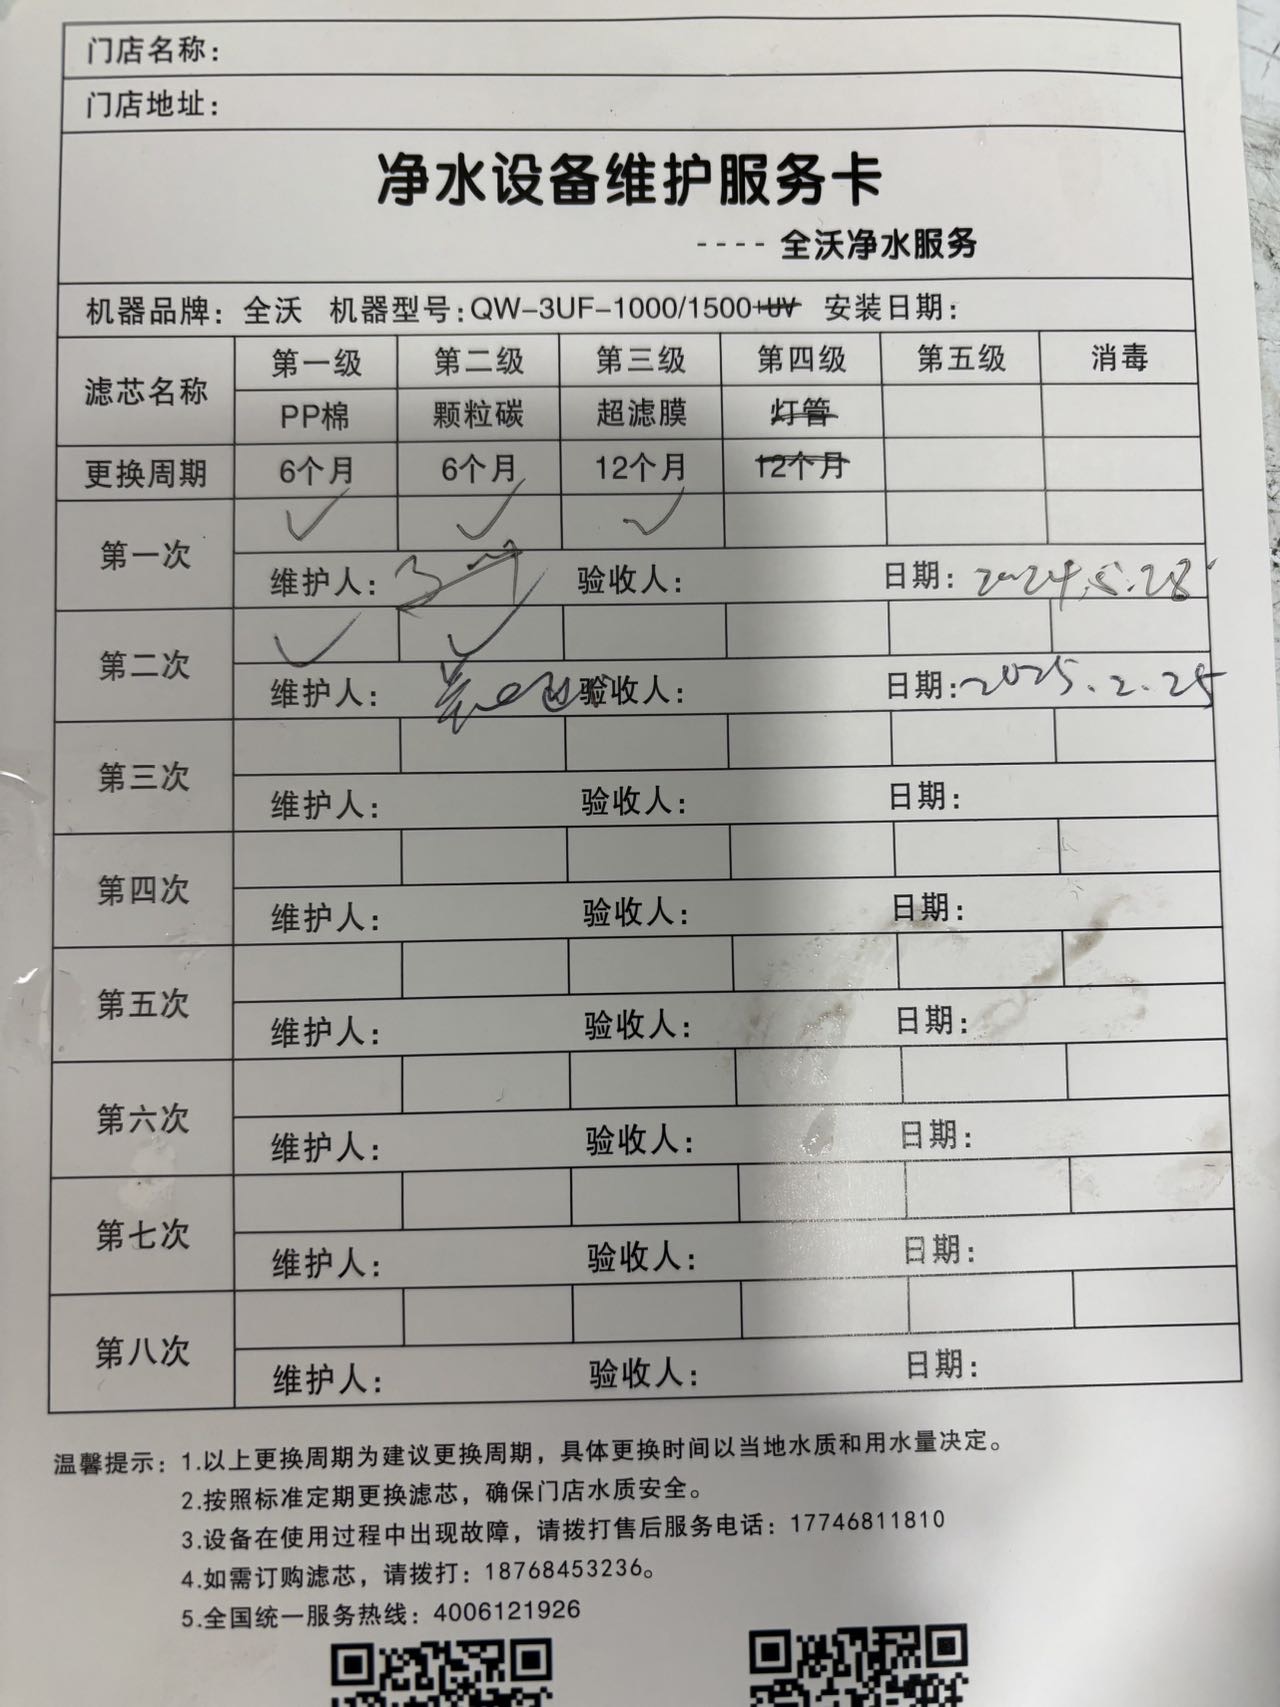 门店名称：
门店地址：
净水设备维护服务卡
---- 全沃净水服务
机器品牌：全沃 机器型号：QW-3UF-1000/1500+UV 安装日期：
滤芯名称 第一级 第二级 第三级 第四级 第五级 消毒
PP棉 颗粒碳 超滤膜 灯管
更换周期 6个月 6个月 12个月 12个月
第一次 ✓ ✓ ✓
维护人： 验收人： 日期：2024.5.28
第二次 ✓ ✓
维护人： 验收人： 日期：2025.2.25
第三次
维护人： 验收人： 日期：
第四次
维护人： 验收人： 日期：
第五次
维护人： 验收人： 日期：
第六次
维护人： 验收人： 日期：
第七次
维护人： 验收人： 日期：
第八次
维护人： 验收人： 日期：
温馨提示：1.以上更换周期为建议更换周期，具体更换时间以当地水质和用水量决定。
2.按照标准定期更换滤芯，确保门店水质安全。
3.设备在使用过程中出现故障，请拨打售后服务电话：17746811810
4.如需订购滤芯，请拨打：18768453236。
5.全国统一服务热线：4006121926